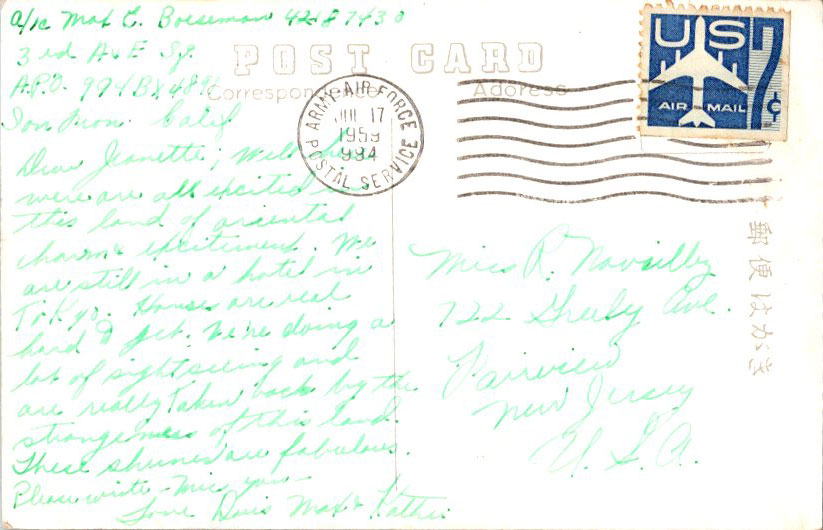 A/1c Max E. Boeseman 42187430
3rd Av E Sq.
A.P.O. 994 Bx
San Fran. Calif
POST CARD
Correspondence Address
US
7¢
AIR MAIL
ARMY AIR FORCE
JUL 17
1959
994
POSTAL SERVICE
Dear Jeanette; Well
were are all excited
this land of oriental
charm & excitement. We
are still in a hotel in
Tokyo. Houses are real
hard to get. We're doing a
lot of sightseeing and
are really taken back by the
strangeness of this land.
These shrines are fabulous.
Please write - Miss you -
Love Doris Max & Kathie
Miss R.
722 Greely Ave.
Fairview
New Jersey
U. S. A.
郵便はがき